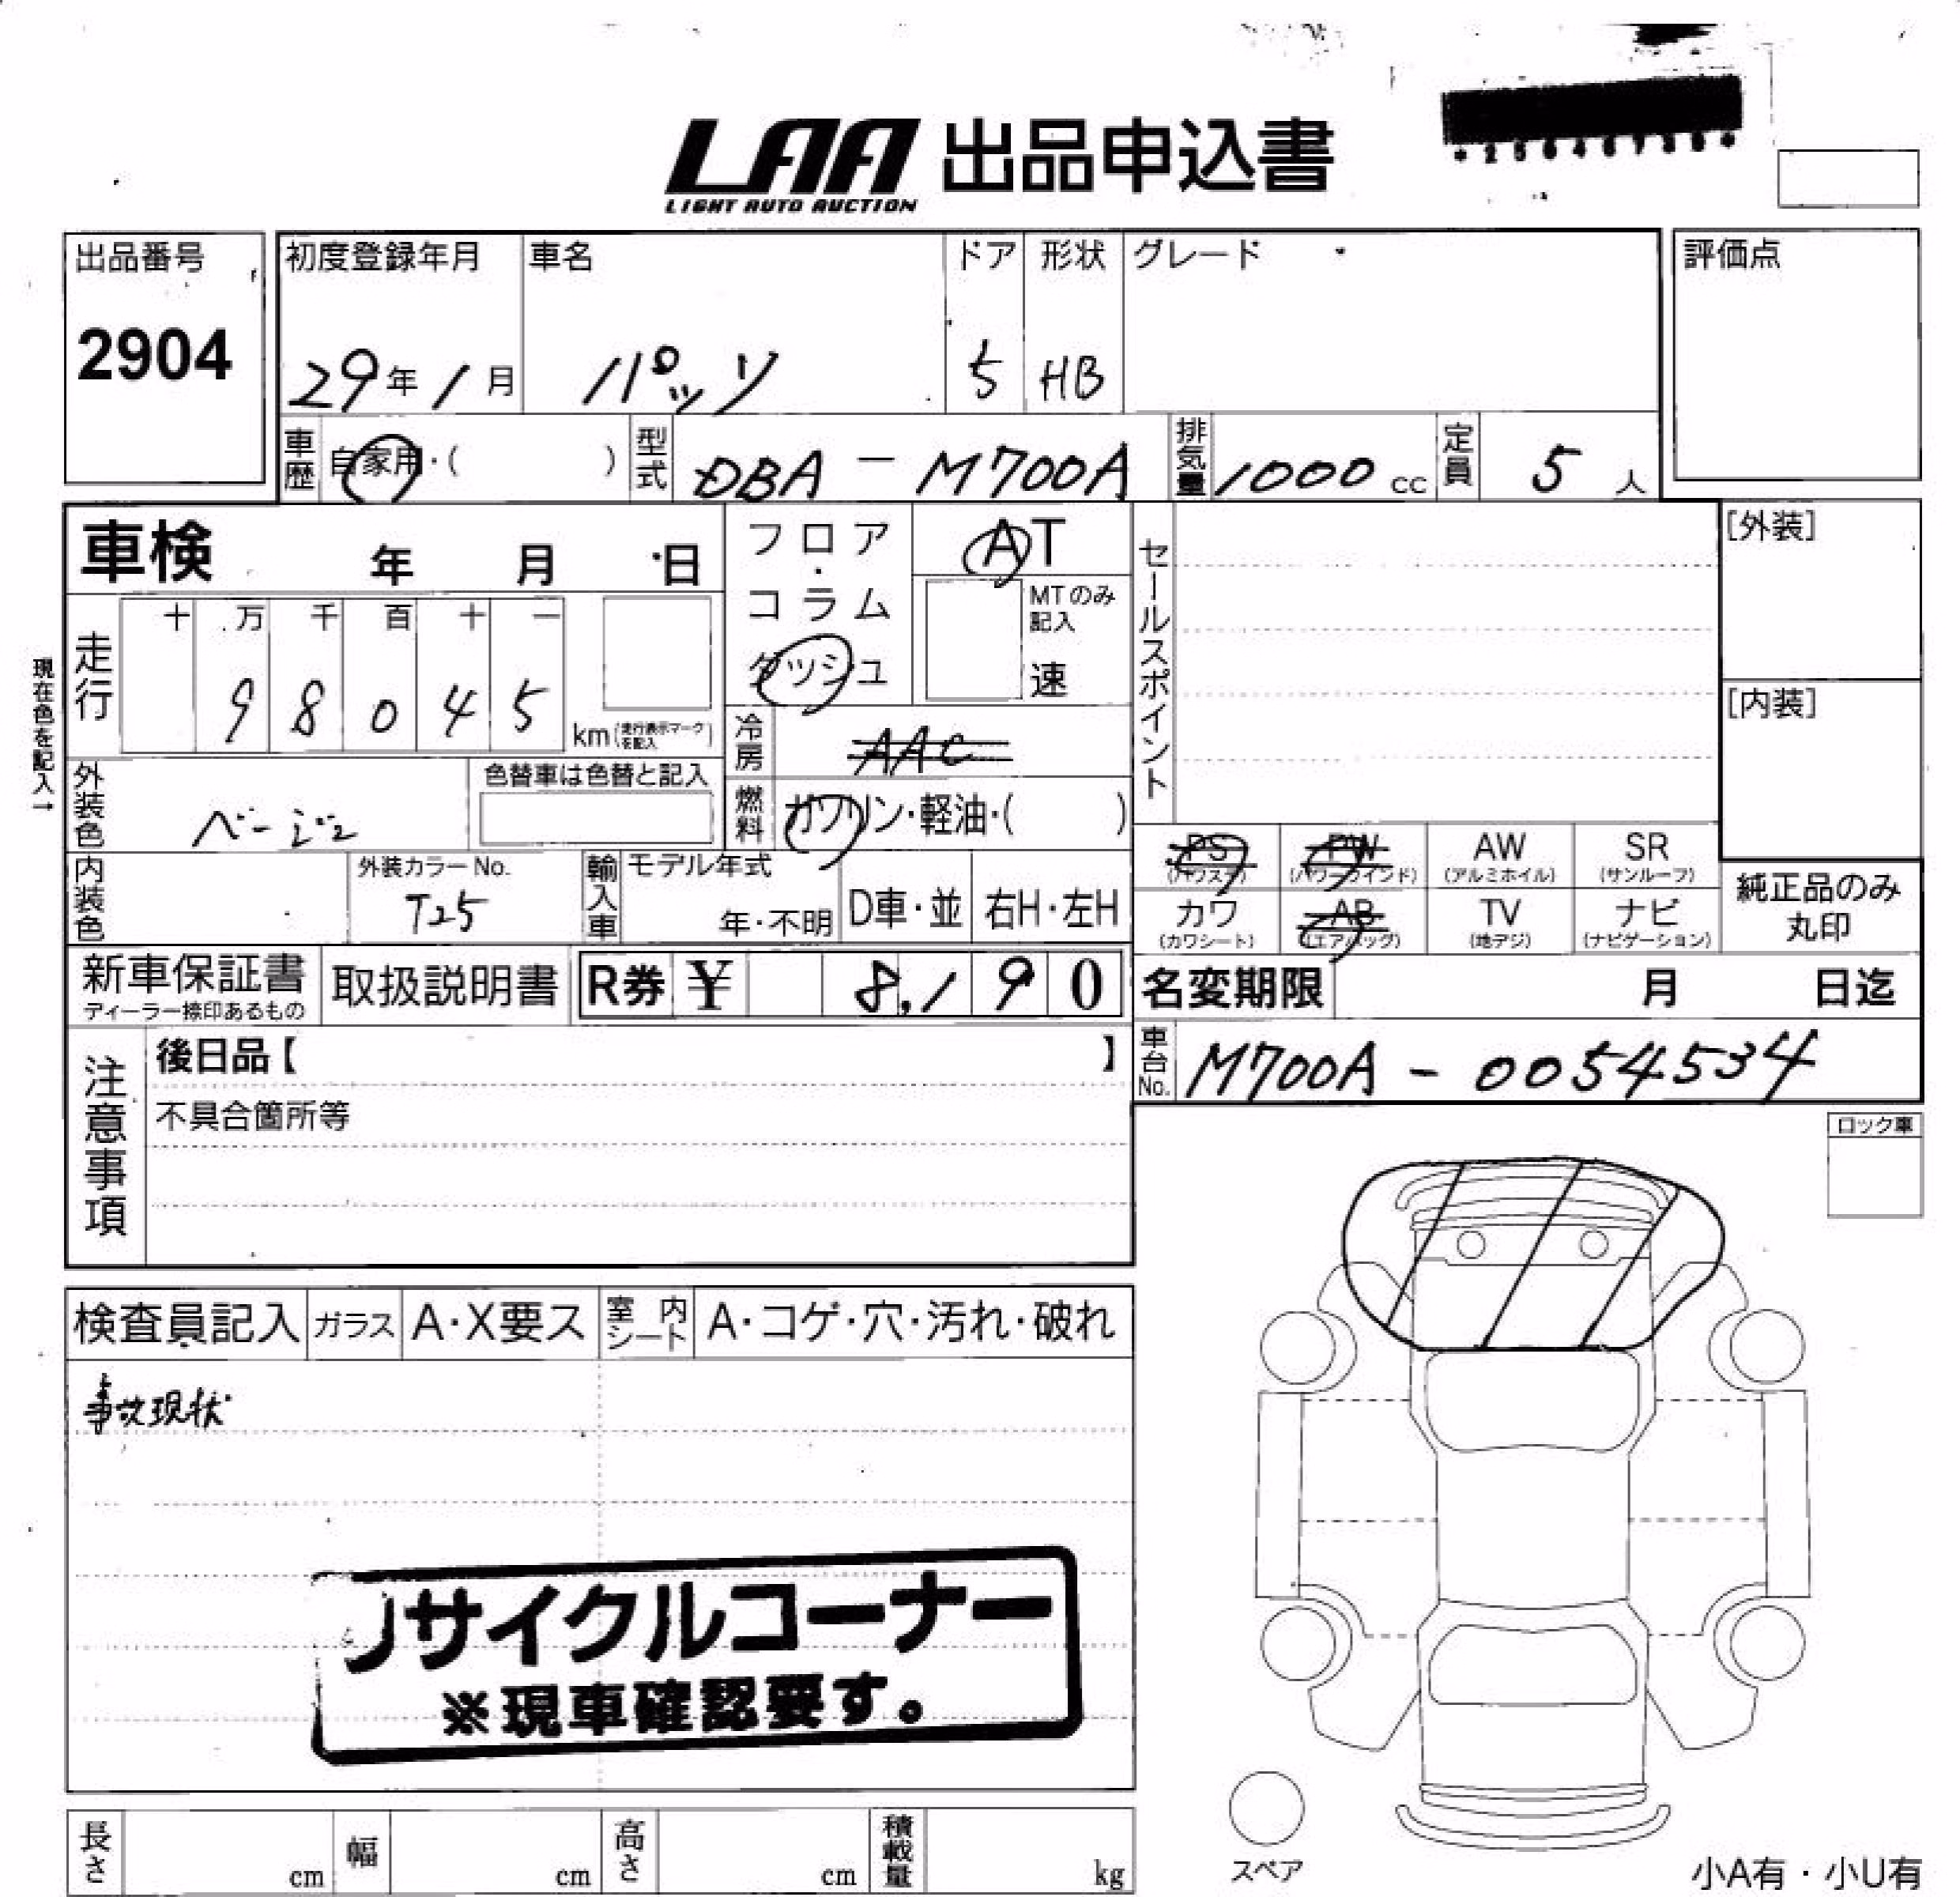 LAA 出品申込書
LIGHT AUTO AUCTION
出品番号
2904
初度登録年月
29年1月
車名
パッソ
ドア
5
形状
HB
グレード
評価点
車歴 自家用・( )
型式 DBA-M700A
排気量 1000 cc
定員 5 人
車検 年 月 日
フロア・コラム ダッシュ
AT
MTのみ記入
速
セールスポイント
[外装]
[内装]
現在色を記入→
走行
十 万 千 百 十 一
9 8 0 4 5
km(走行表示マークを記入)
冷房 AAC
燃料 ガソリン・軽油・( )
外装色 ベージュ
色替車は色替と記入
内装色
外装カラーNo.
T25
輸入車 モデル年式
年・不明
D車・並 右H・左H
PS
(パワステ)
PW
(パワーウインド)
AW
(アルミホイル)
SR
(サンルーフ)
カワ
(カワシート)
AB
(エアバッグ)
TV
(地デジ)
ナビ
(ナビゲーション)
純正品のみ
丸印
新車保証書
ディーラー捺印あるもの
取扱説明書
R券 ¥ 8,190
名変期限 月 日迄
車台No. M700A-0054534
注意事項
後日品【 】
不具合箇所等
ロック車
検査員記入 ガラス A・X要ス 室内シート A・コゲ・穴・汚れ・破れ
事故現状
リサイクルコーナー
※現車確認要す。
長さ cm 幅 cm 高さ cm 積載量 kg
スペア
小A有・小U有